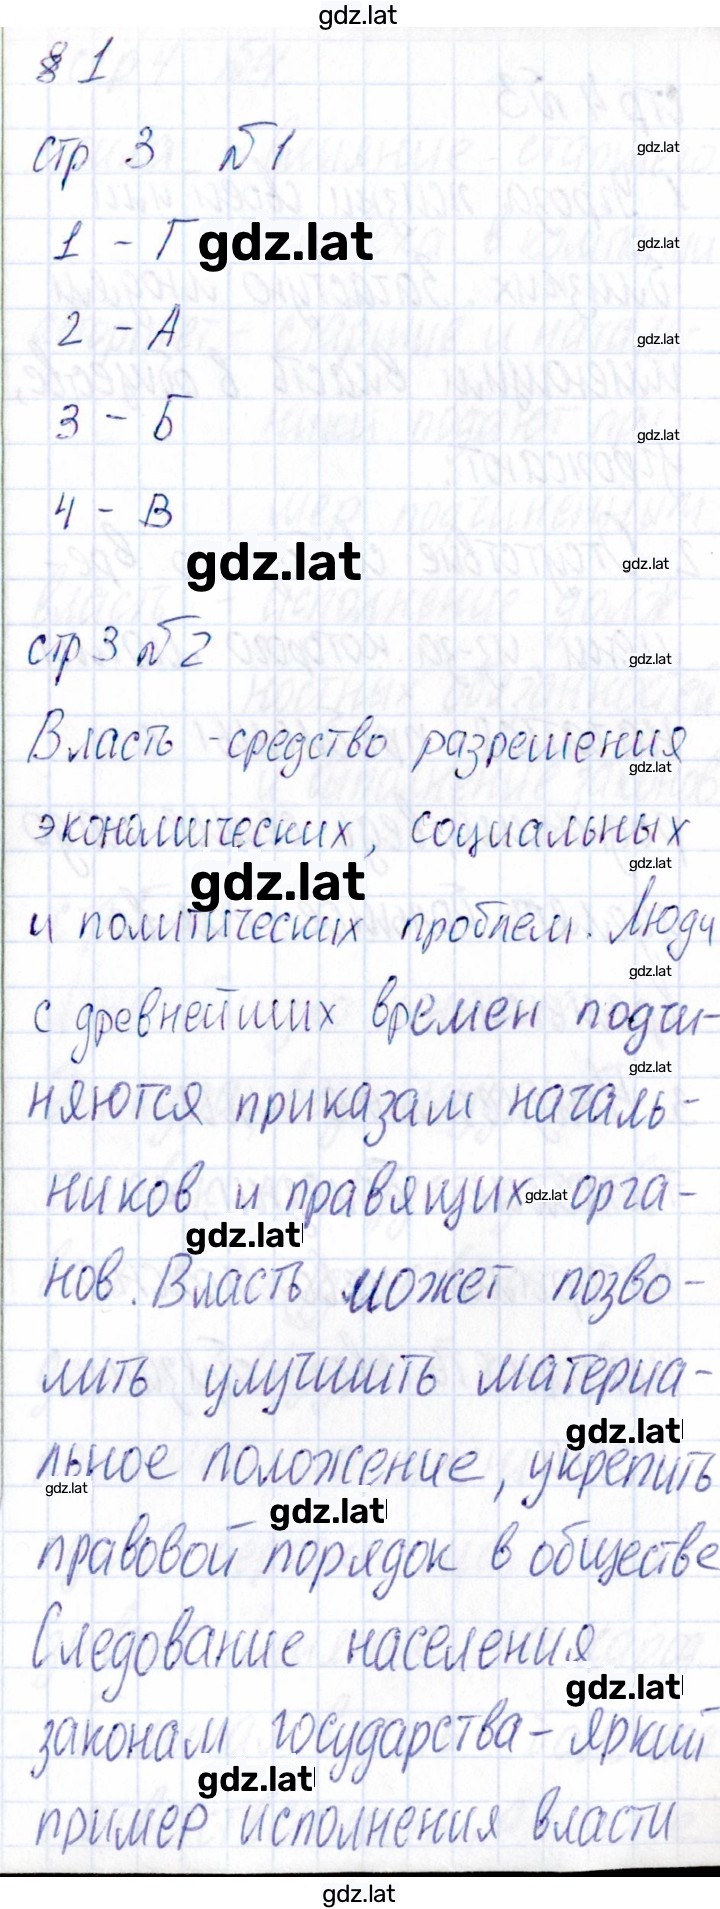 gdz.lat
§ 1
стр 3 №1
gdz.lat
1 - Г gdz.lat
gdz.lat
2 - А
gdz.lat
3 - Б
gdz.lat
4 - В
gdz.lat
gdz.lat
стр 3 №2
gdz.lat
Власть - средство разрешения
gdz.lat
экономических, социальных
gdz.lat
gdz.lat
и политических проблем. Люди
gdz.lat
с древнейших времен подчи-
gdz.lat
няются приказам началь-
ников и правящих gdz.lat орга-
gdz.lat
нов. Власть может позво-
лить улучшить материа-
gdz.lat
льное положение, укрепить
gdz.lat
gdz.lat
правовой порядок в обществе
Следование населения
gdz.lat
законам государства - яркий
gdz.lat
пример исполнения власти
gdz.lat